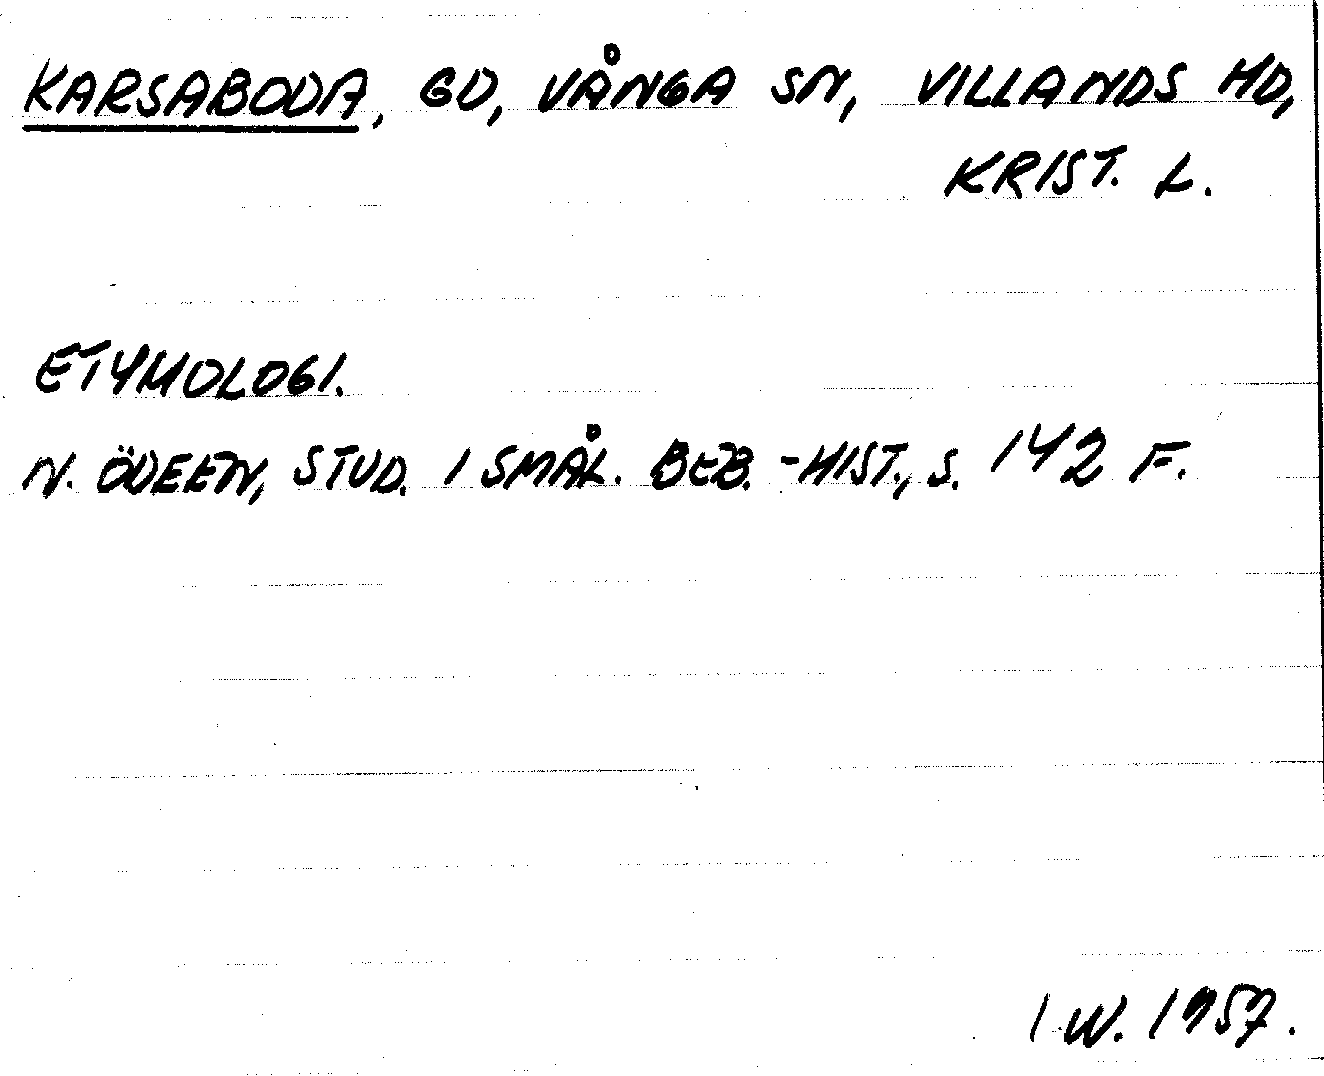 KARSABODA, GD, VÅNGA SN, VILLANDS HD,
KRIST. L.
ETYMOLOGI.
N. ÖDEEN, STUD. I SMÅL. BEB.-HIST., S. 142 F.
I W. 1957.